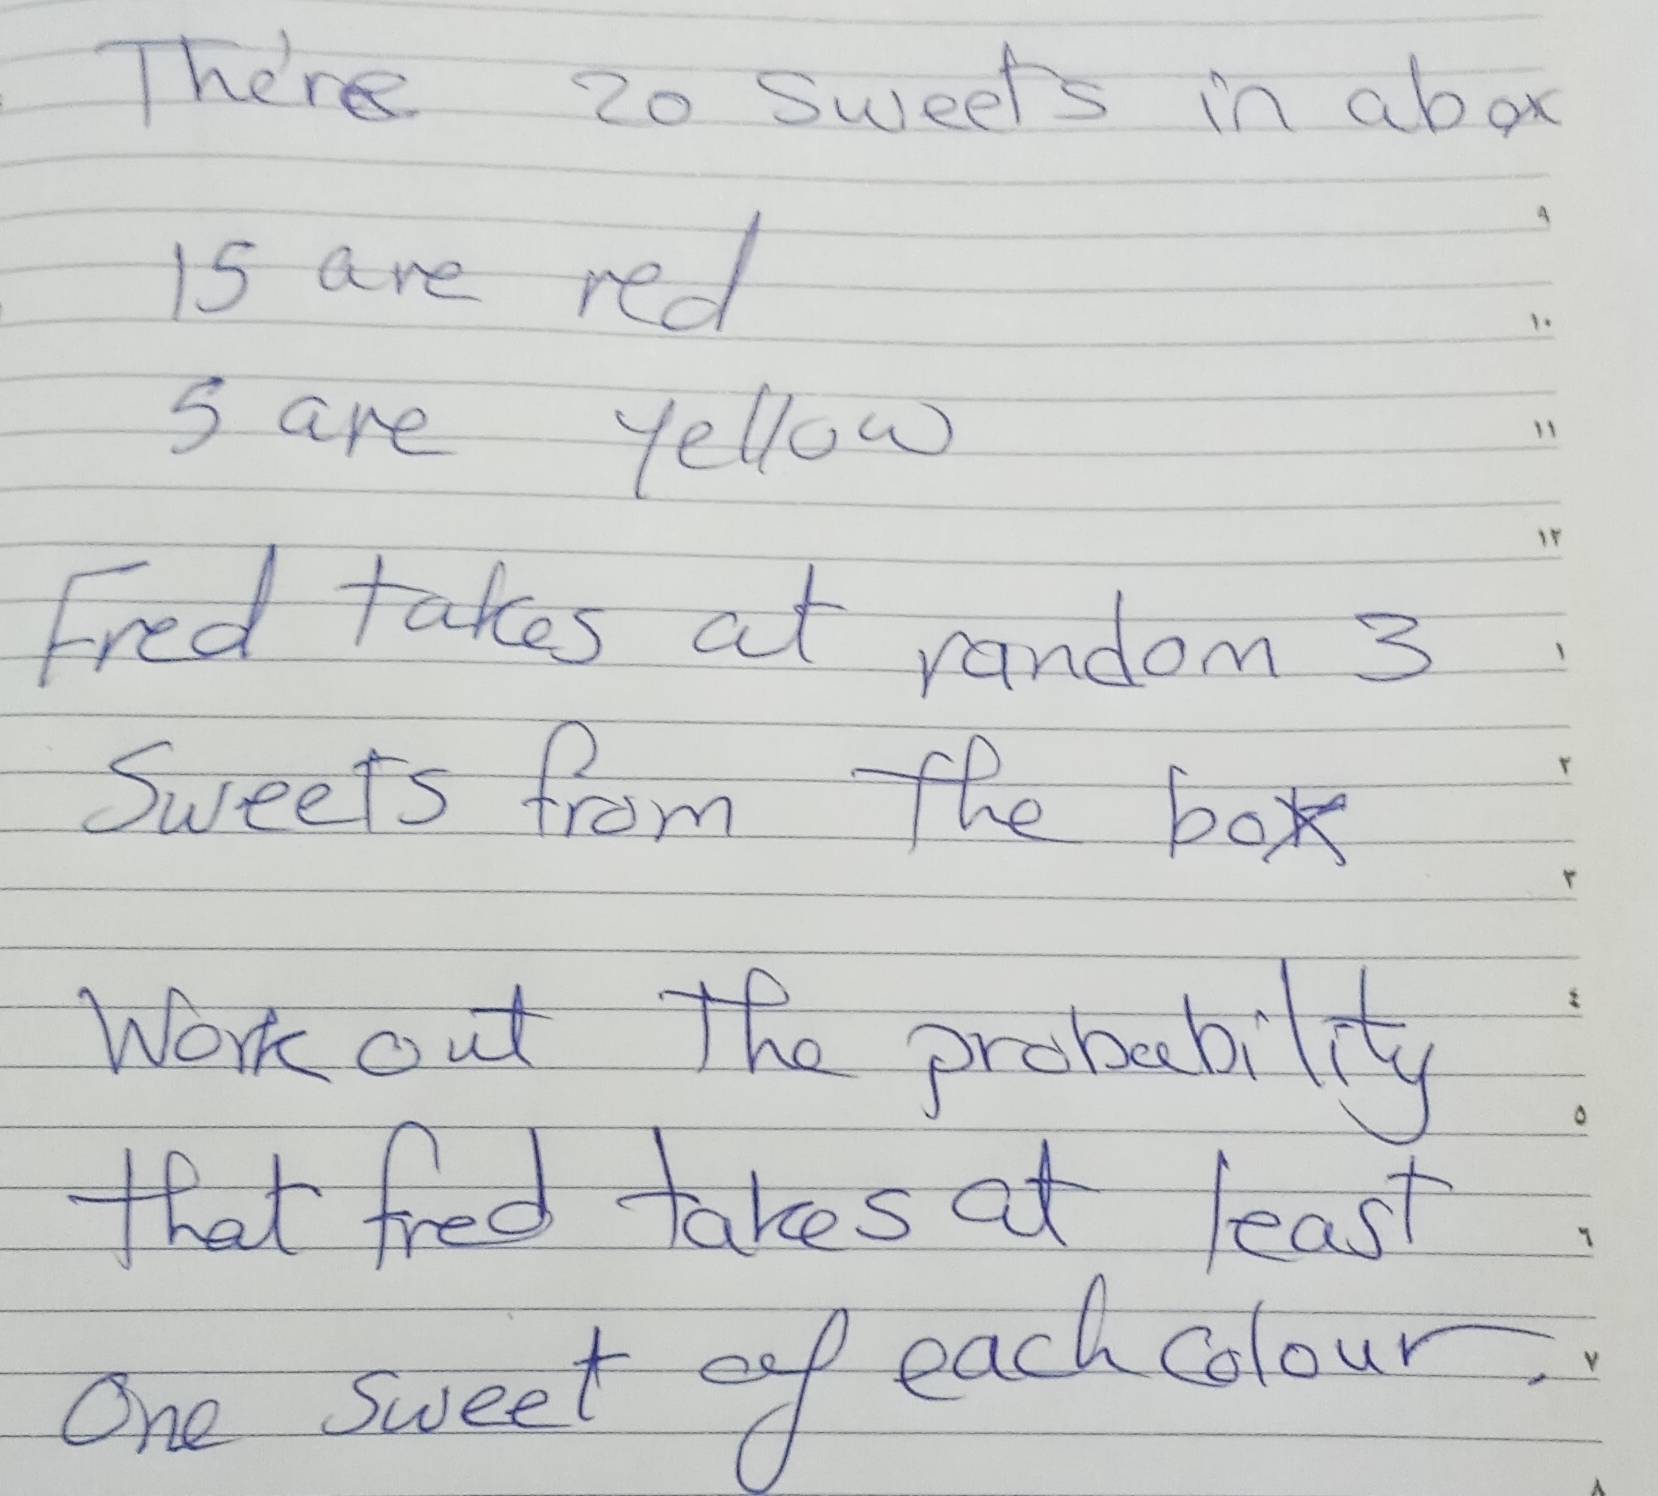 There 20 sweets in a box
٩
15 are red
١٠
5 are yellow
١١
١٢
Fred takes at random 3
١
Sweets from the box
٢
٣
Work out the probability
٤
٥
that fred takes at least
٦
one sweet of each colour.
٧
٨